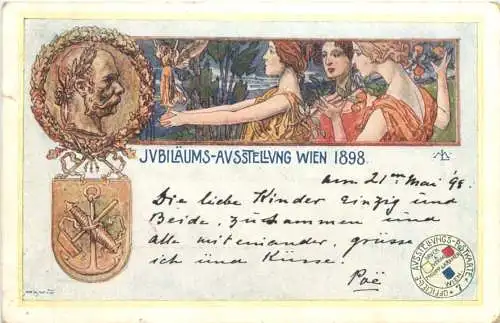 JVBILÄUMS-AVSSTELLVNG WIEN 1898.
am 21ten Mai '98.
Die liebe Kinder einzig und
Beide, zusammen und
alle miteinander, grüsse
ich und Küsse.
Poë
OFFICIELLE AUSSTELLUNGS-POSTKARTE